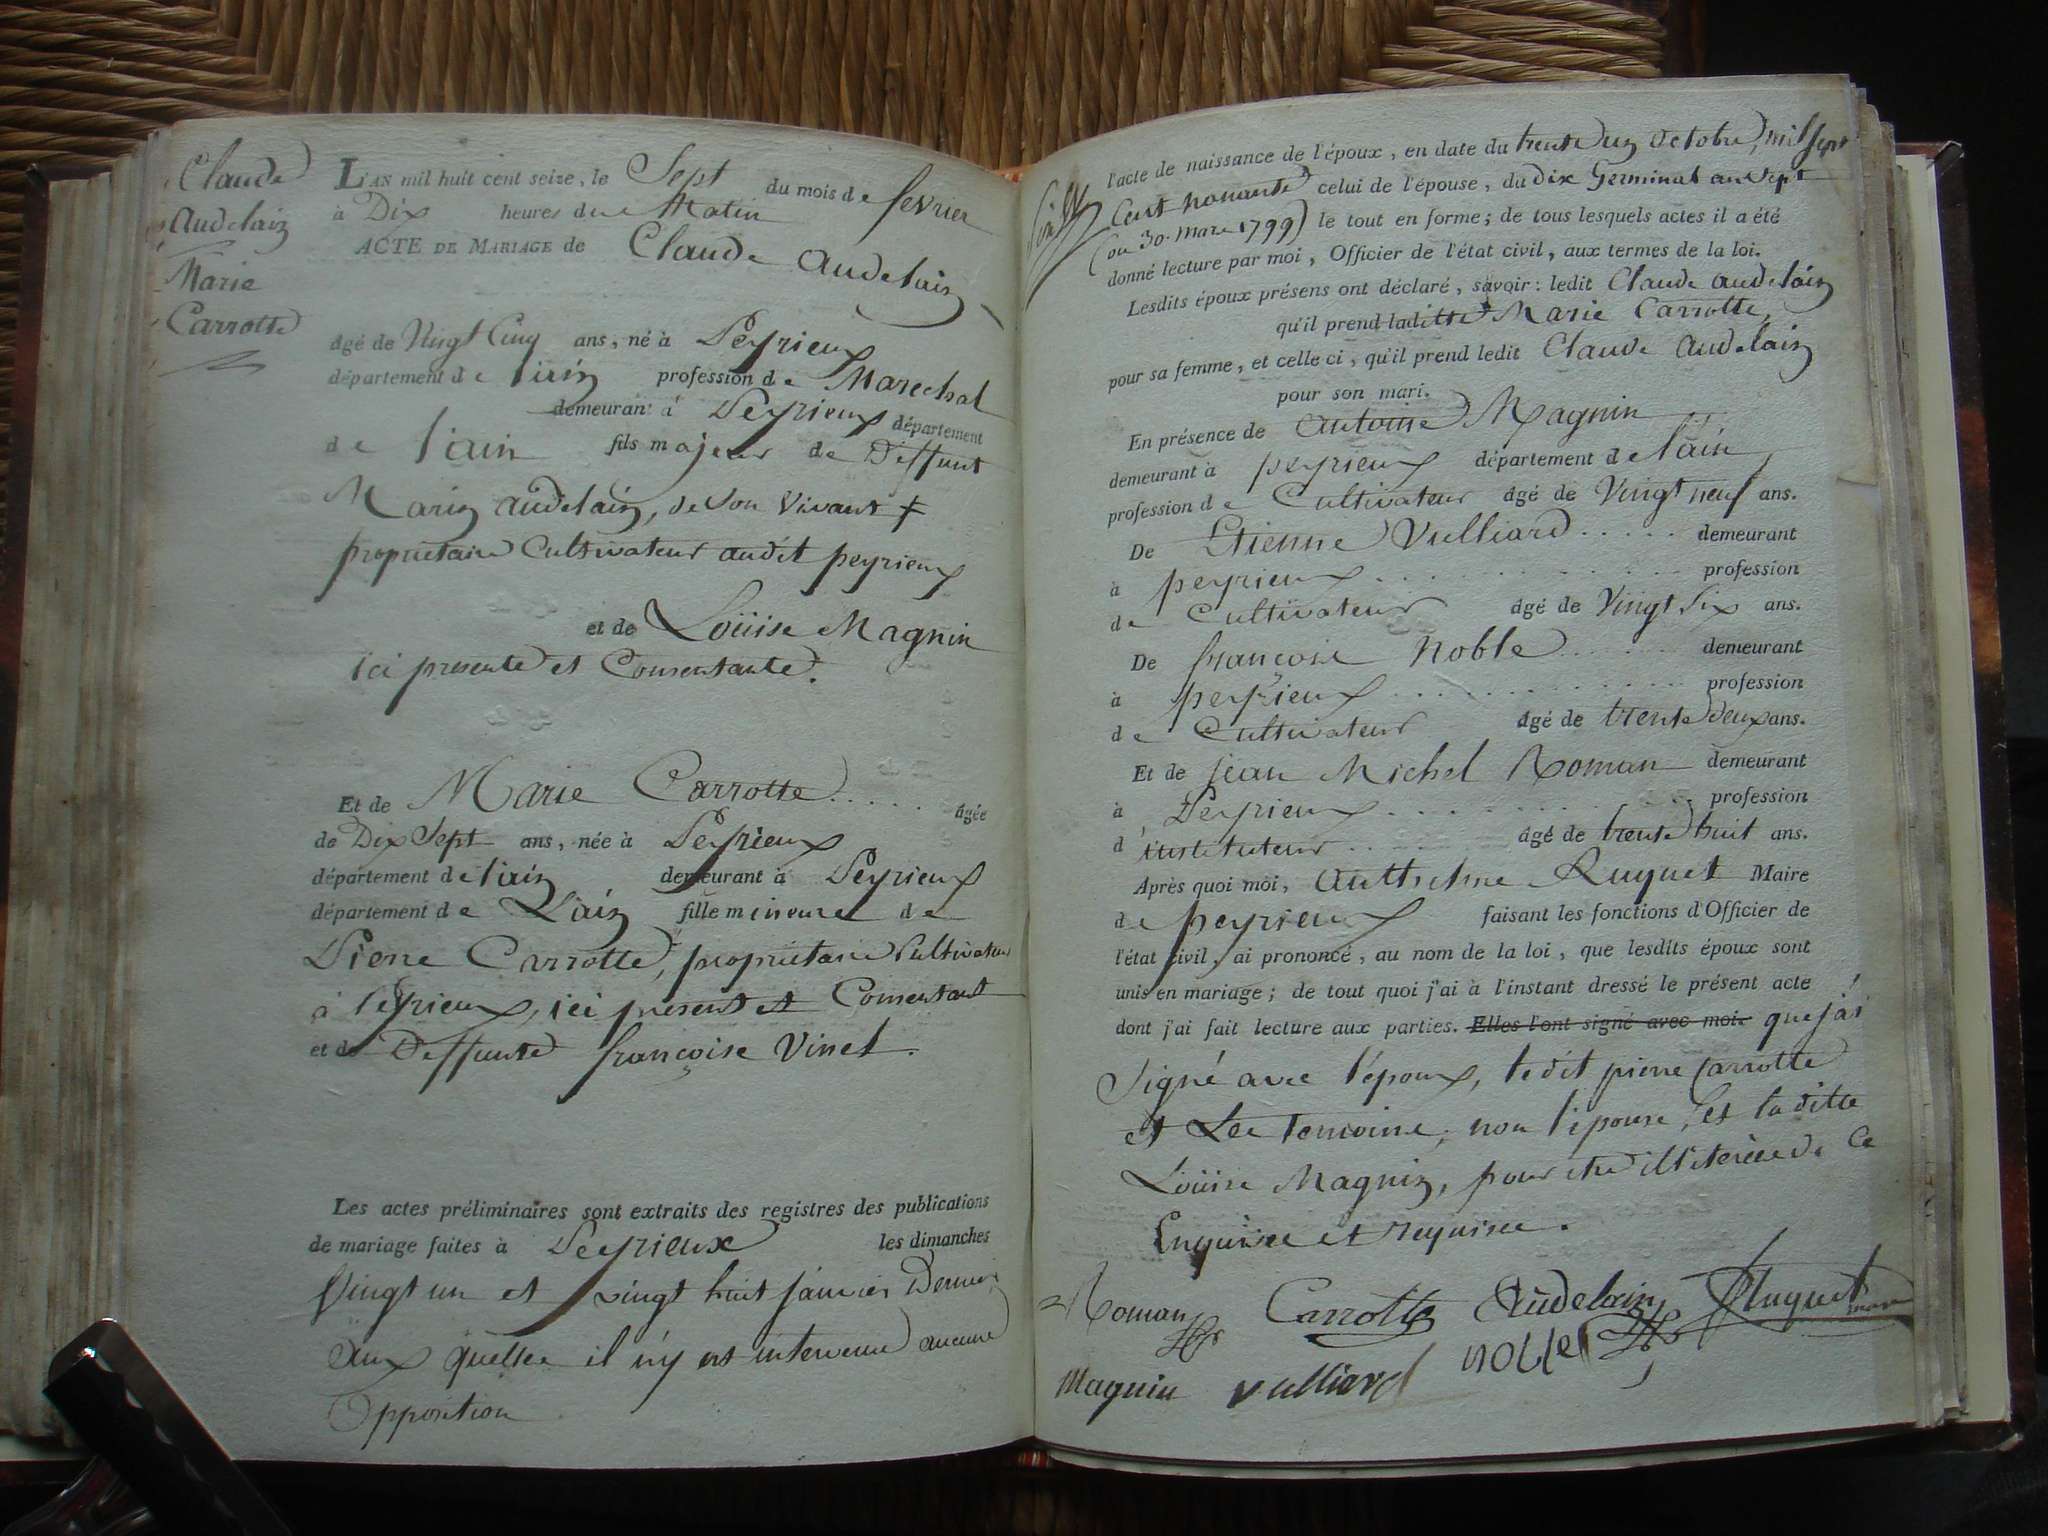 Claude
Audelain
Marie
Carrotte
L'AN mil huit cent seize, le Sept du mois de fevrier
à Dix heures du Matin
ACTE DE MARIAGE de Claude Audelain
âgé de Vingt Cinq ans, né à Peyrieux
département de l'ain profession de Marechal
demeurant à Peyrieux département
de l'ain fils majeur de Deffunt
Marin Audelain, de Son Vivant
proprietaire Cultivateur audit peyrieux
et de Loüise Magnin
ici presente et Consentante.
Et de Marie Carrotte..... âgée
de Dix Sept ans, née à Peyrieux
département de l'ain demeurant à Peyrieux
département de L'ain fille mineure de
Pierre Carrotte, propriétaire Cultivateur
à Peyrieux, ici present et Consentant
et de Deffunte françoise Vinet.
Les actes préliminaires sont extraits des registres des publications
de mariage faites à Peyrieux les dimanches
Vingt un et vingt huit janvier Dernier
aux quelles il n'y est intervenu aucune
Opposition
l'acte de naissance de l'époux, en date du trente un Octobre, mil sept
Cent nonante celui de l'épouse, du dix Germinal an Sept
(ou 30. Mars 1799) le tout en forme; de tous lesquels actes il a été
donné lecture par moi, Officier de l'état civil, aux termes de la loi.
Lesdits époux présens ont déclaré, savoir: ledit Claude Audelain
qu'il prend laditte Marie Carrotte,
pour sa femme, et celle ci, qu'il prend ledit Claude Audelain
pour son mari.
En présence de Antoine Magnin
demeurant à peyrieux département de l'ain,
profession de Cultivateur âgé de Vingt neuf ans.
De Etienne Vulliard..... demeurant
à peyrieux............ profession
de Cultivateur âgé de Vingt Six ans.
De françois Noble..... demeurant
à peyrieux............ profession
de Cultivateur âgé de trente deux ans.
Et de jean Michel Roman demeurant
à Peyrieux............ profession
d'instituteur..... âgé de trente huit ans.
Après quoi moi, Anthelme Ruquet Maire
de peyrieux faisant les fonctions d'Officier de
l'état civil, ai prononcé, au nom de la loi, que lesdits époux sont
unis en mariage; de tout quoi j'ai à l'instant dressé le présent acte
dont j'ai fait lecture aux parties. Elles l'ont signé avec moi. que j'ai
Signé avec l'époux, ledit pierre Carrotte
et Les temoins, non l'épouse, et la ditte
Loüise Magnin, pour etre illiterées de Ce
Enquises et requises.
Roman Carrotte Audelain Ruquet maire
Magnin vulliard noble